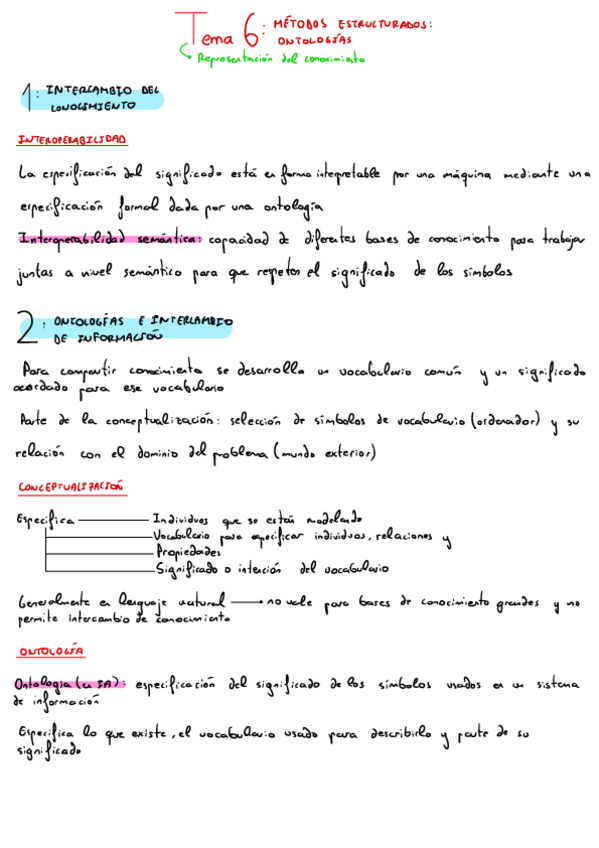 Tema 6: MÉTODOS ESTRUCTURADOS:
ONTOLOGÍAS
Representación del conocimiento
1: INTERCAMBIO DEL
CONOCIMIENTO
INTEROPERABILIDAD
La especificación del significado está en forma interpretable por una máquina mediante una
especificación formal dada por una ontología
Interoperabilidad semántica: capacidad de diferentes bases de conocimiento para trabajar
juntas a nivel semántico para que respeten el significado de los símbolos
2: ONTOLOGÍAS E INTERCAMBIO
DE INFORMACIÓN
Para compartir conocimiento se desarrolla un vocabulario común y un significado
acordado para ese vocabulario
Parte de la conceptualización: selección de símbolos de vocabulario (ordenador) y su
relación con el dominio del problema (mundo exterior)
CONCEPTUALIZACIÓN
Especifica Individuos que se están modelando
Vocabulario para especificar individuos, relaciones y
Propiedades
Significado o intención del vocabulario
Generalmente en lenguaje natural → no vale para bases de conocimiento grandes y no
permite intercambio de conocimiento
ONTOLOGÍA
Ontología (en IA): especificación del significado de los símbolos usados en un sistema
de información
Especifica lo que existe, el vocabulario usado para describirlo y parte de su
significado